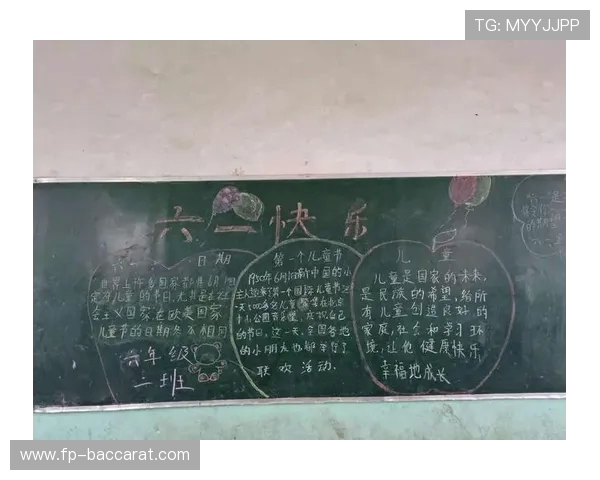 TG: MYYJJPP
六一快乐
日期
世界上许多国家都将6月1日
定为儿童的节日,尤其是在社
会主义国家。在欧美国家
儿童节的日期各不相同
六年级
二班
第一个儿童节
1950年6月1日新中国的小
主人迎来了第一个国际儿童节
5000多名儿童
的节日,这一天,全国各地
的小朋友也都举行了
联欢活动.
儿童
儿童是国家的未来,
是民族的希望,给所
有儿童创造良好的
家庭,社会和学习环
境,让他健康快乐
幸福地成长
www.fp-baccarat.com